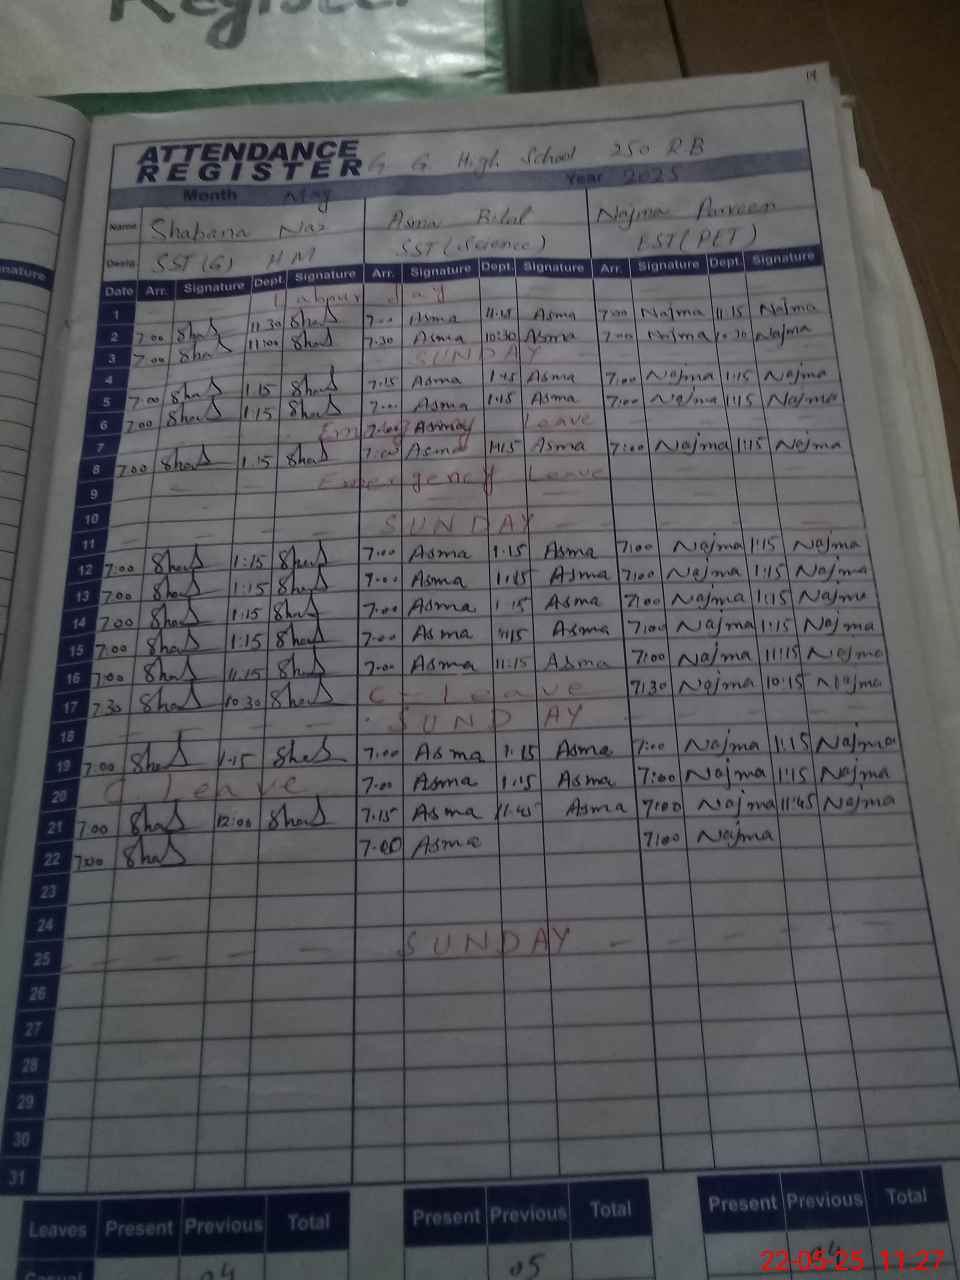 Register
19
ATTENDANCE REGISTER G G High School 250 RB
Month May Year 2025
Name Shabana Naz Asma Bilal Najma Parveen
Desig. SST(G) HM SST(Science) EST(PET)
Date Arr. Signature Dept. Signature Arr. Signature Dept. Signature Arr. Signature Dept. Signature
1 Labour day
2 7:00 Shad 11:30 Shad 7:00 Asma 11:15 Asma 7:00 Najma 11:15 Najma
3 7:00 Shad 11:00 Shad 7.30 Asma 10:30 Asma 7:00 Najma 10:30 Najma
4 SUNDAY
5 7:00 Shad 1:15 Shad 7:15 Asma 1:45 Asma 7:00 Najma 1:15 Najma
6 7:00 Shad 1:15 Shad 7:00 Asma 1:15 Asma 7:00 Najma 1:15 Najma
7 Leave
8 7:00 Shad 1:15 Shad 7:00 Asma 1:15 Asma 7:00 Najma 1:15 Najma
9 Emergency Leave
10
11 SUNDAY
12 7:00 Shad 1:15 Shad 7:00 Asma 1:15 Asma 7:00 Najma 1:15 Najma
13 7:00 Shad 1:15 Shad 7:00 Asma 1:15 Asma 7:00 Najma 1:15 Najma
14 7:00 Shad 1:15 Shad 7:00 Asma 1:15 Asma 7:00 Najma 1:15 Najma
15 7:00 Shad 1:15 Shad 7:00 Asma 1:15 Asma 7:00 Najma 1:15 Najma
16 7:00 Shad 11:15 Shad 7:00 Asma 11:15 Asma 7:00 Najma 11:15 Najma
17 7:30 Shad 10:30 Shad C-Leave 7:30 Najma 10:15 Najma
18 SUNDAY
19 7:00 Shad 1:15 Shad 7:00 Asma 1:15 Asma 7:00 Najma 1:15 Najma
20 C Leave 7:00 Asma 1:15 Asma 7:00 Najma 1:15 Najma
21 7:00 Shad 12:00 Shad 7:15 Asma 11:45 Asma 7:00 Najma 11:45 Najma
22 7:00 Shad 7:00 Asma 7:00 Najma
23
24
25 SUNDAY
26
27
28
29
30
31
Leaves Present Previous Total Present Previous Total Present Previous Total
04 05
22-05-25 11:27